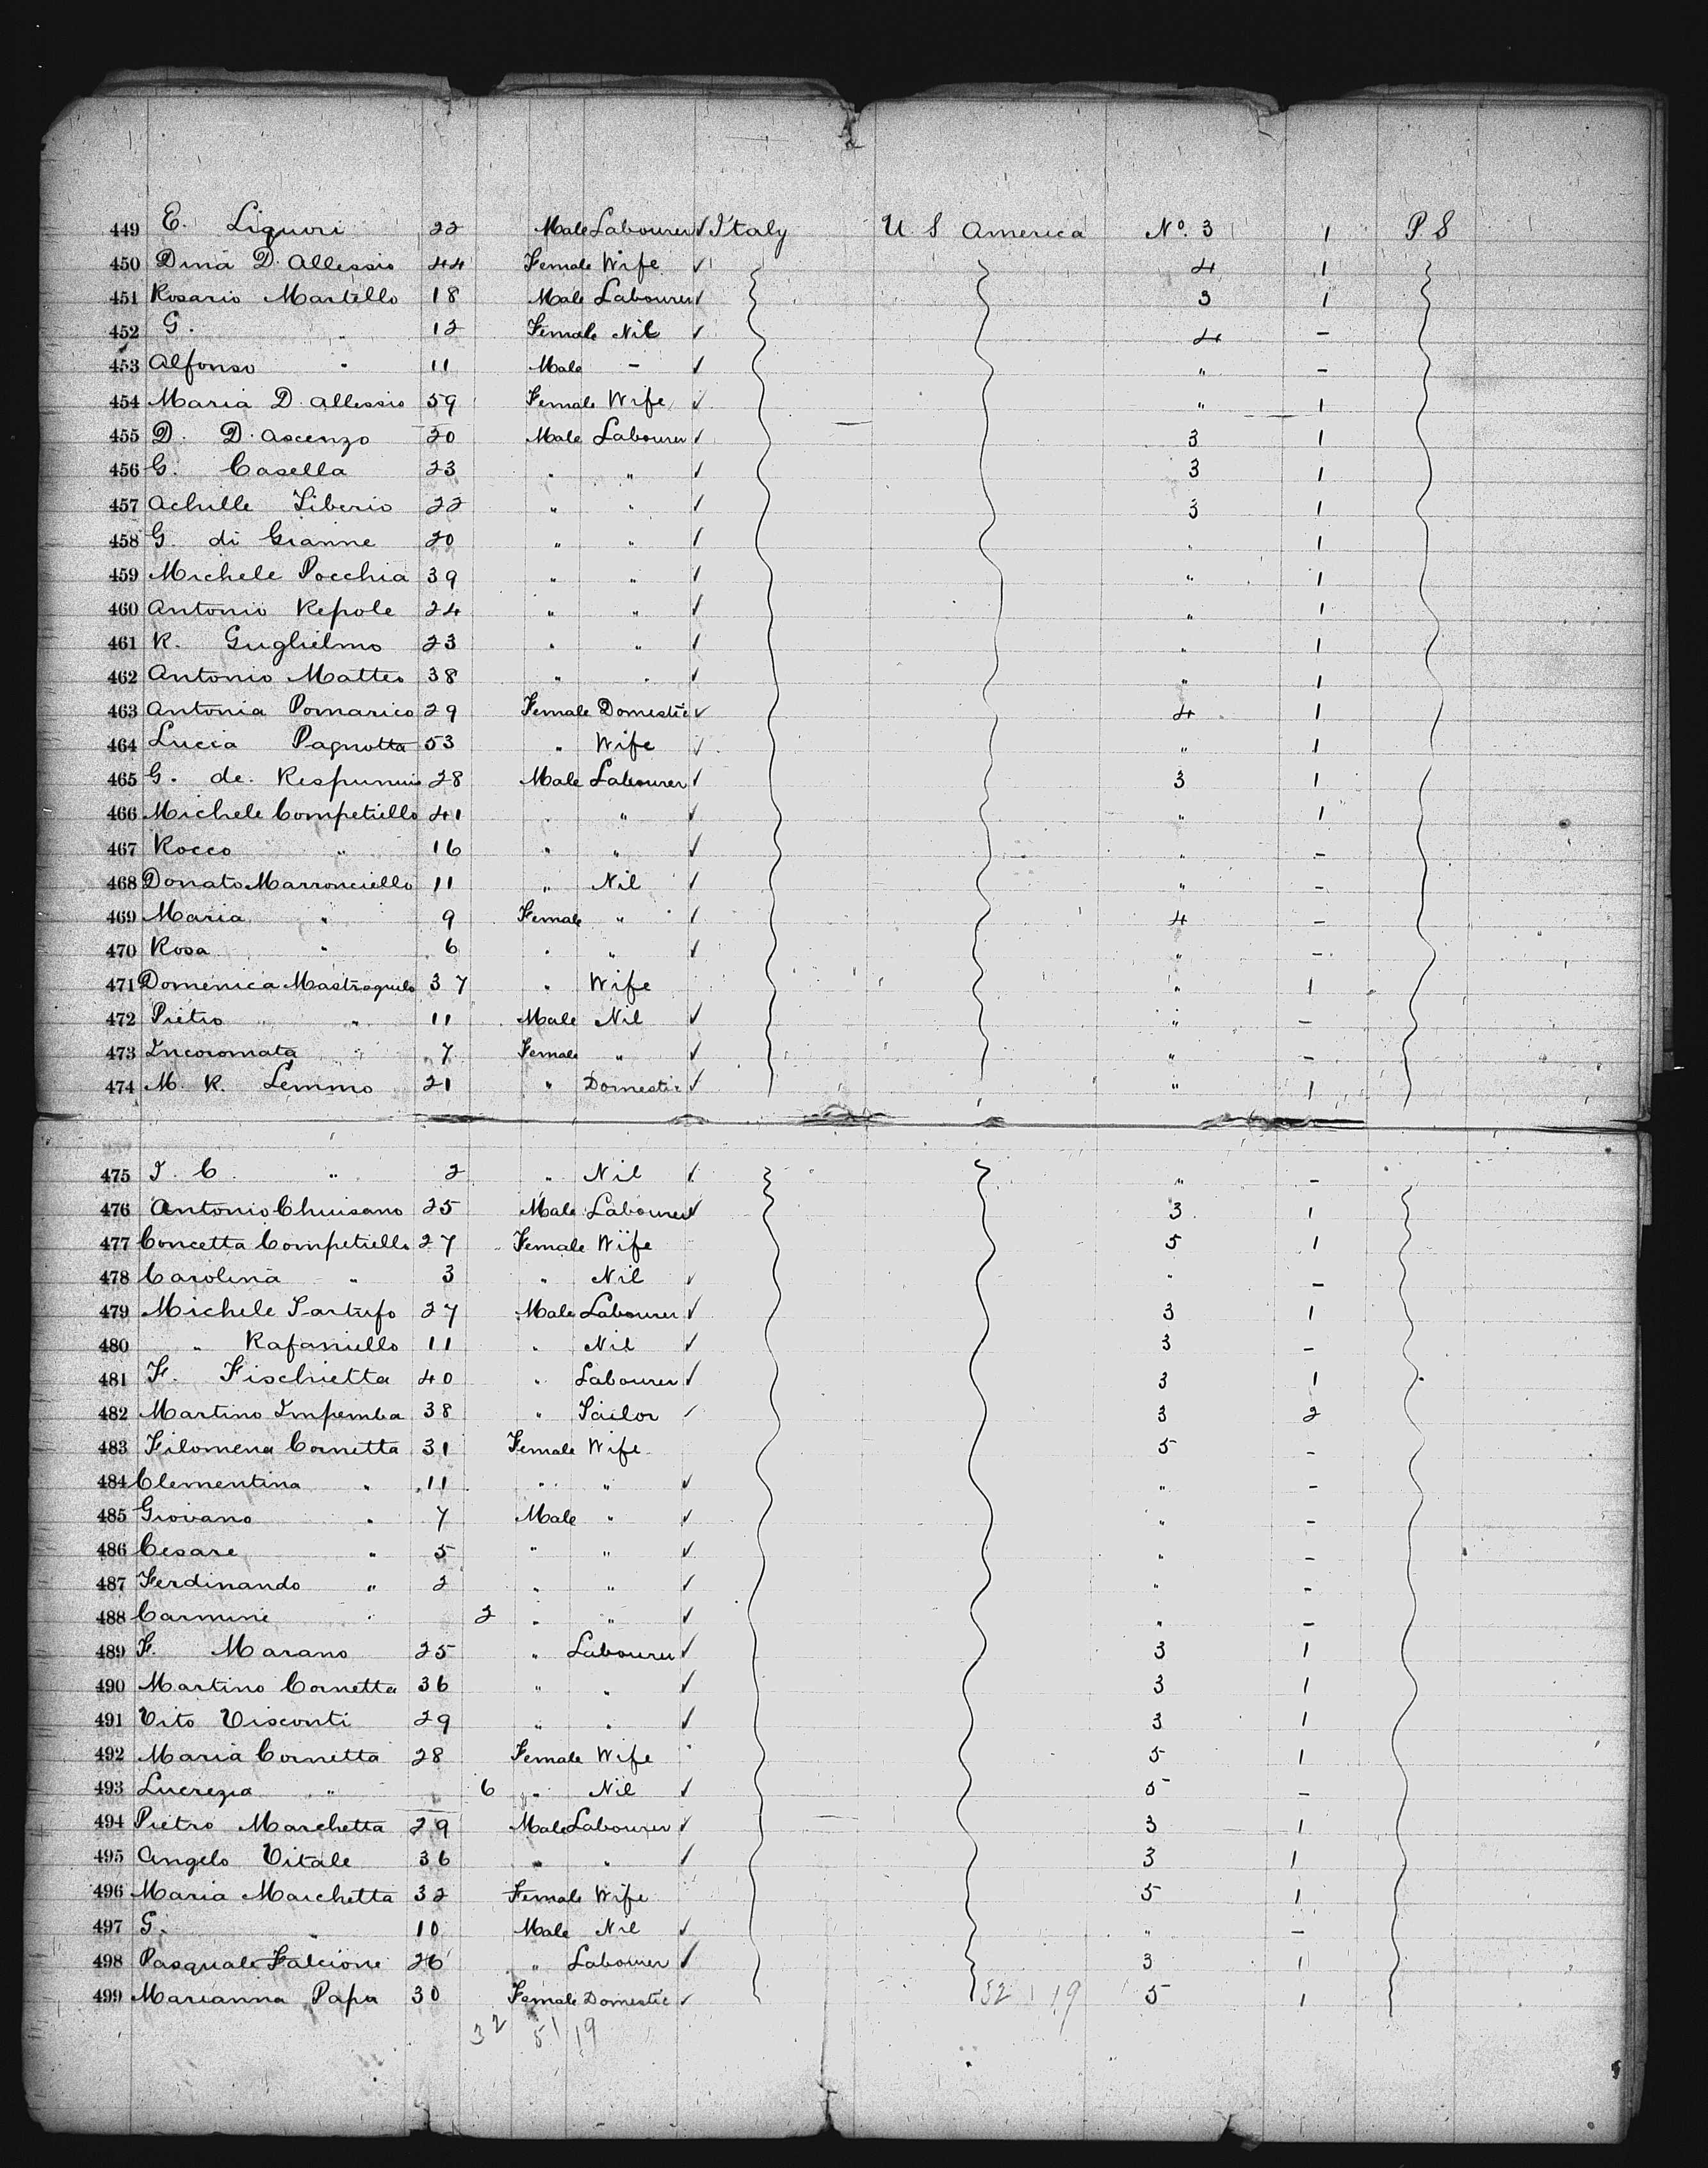 449 E. Liguori 22 Male Labourer ✓ Italy U S America No. 3 1 P S
450 Dina D. Allessio 44 Female Wife ✓ 4 1
451 Rosario Martello 18 Male Labourer ✓ 3 1
452 G. " 12 Female Nil ✓ 4 -
453 Alfonso " 11 Male - ✓ " -
454 Maria D. Allessio 59 Female Wife ✓ " 1
455 D. D. Ascenzo 20 Male Labourer ✓ 3 1
456 G. Casella 23 " " ✓ 3 1
457 Achille Tiberio 22 " " ✓ 3 1
458 G. di Gianne 20 " " ✓ " 1
459 Michele Pocchia 39 " " ✓ " 1
460 Antonio Repole 24 " " ✓ " 1
461 R. Guglielmo 23 " " ✓ " 1
462 Antonio Matteo 38 " " ✓ " 1
463 Antonia Pomarico 29 Female Domestic ✓ 4 1
464 Lucia Pagnotta 53 " Wife ✓ " 1
465 G. de 28 Male Labourer ✓ 3 1
466 Michele Competiello 41 " " ✓ " 1
467 Rocco " 16 " " ✓ " -
468 Donato Marronciello 11 " Nil ✓ " -
469 Maria " 9 Female " ✓ 4 -
470 Rosa " 6 " " ✓ " -
471 Domenica 37 " Wife " 1
472 Pietro " 11 Male Nil ✓ " -
473 Incoronata " 7 Female " ✓ " -
474 M. R. Lemmo 21 " Domestic ✓ " 1
475 T. C. " 2 " Nil ✓ " -
476 Antonio Chuisano 25 Male Labourer ✓ 3 1
477 Concetta Competiello 27 Female Wife 5 1
478 Carolina " 3 " Nil ✓ " -
479 Michele Tartufo 27 Male Labourer ✓ 3 1
480 " Rafaniello 11 " Nil ✓ 3 -
481 F. Fischietta 40 " Labourer ✓ 3 1
482 Martino Impemba 38 " Tailor ✓ 3 2
483 Filomena Cornetta 31 Female Wife 5 -
484 Clementina " 11 " " ✓ " -
485 Giovano " 7 Male " ✓ " -
486 Cesare " 5 " " ✓ " -
487 Ferdinando " 2 " " ✓ " -
488 Carmine " 2 " " ✓ " -
489 F. Marano 25 " Labourer ✓ 3 1
490 Martino Cornetta 36 " " ✓ 3 1
491 Vito Visconti 29 " " ✓ 3 1
492 Maria Cornetta 28 Female Wife 5 1
493 Lucrezia " 6 " Nil ✓ 5 -
494 Pietro Marchetta 29 Male Labourer ✓ 3 1
495 Angelo Vitale 36 " " ✓ 3 1
496 Maria Marchetta 32 Female Wife 5 1
497 G. " 10 Male Nil ✓ " -
498 Pasquale Falcione 26 " Labourer ✓ 3 1
499 Marianna Papa 30 Female Domestic ✓ 32 19 5 1
32 51 19